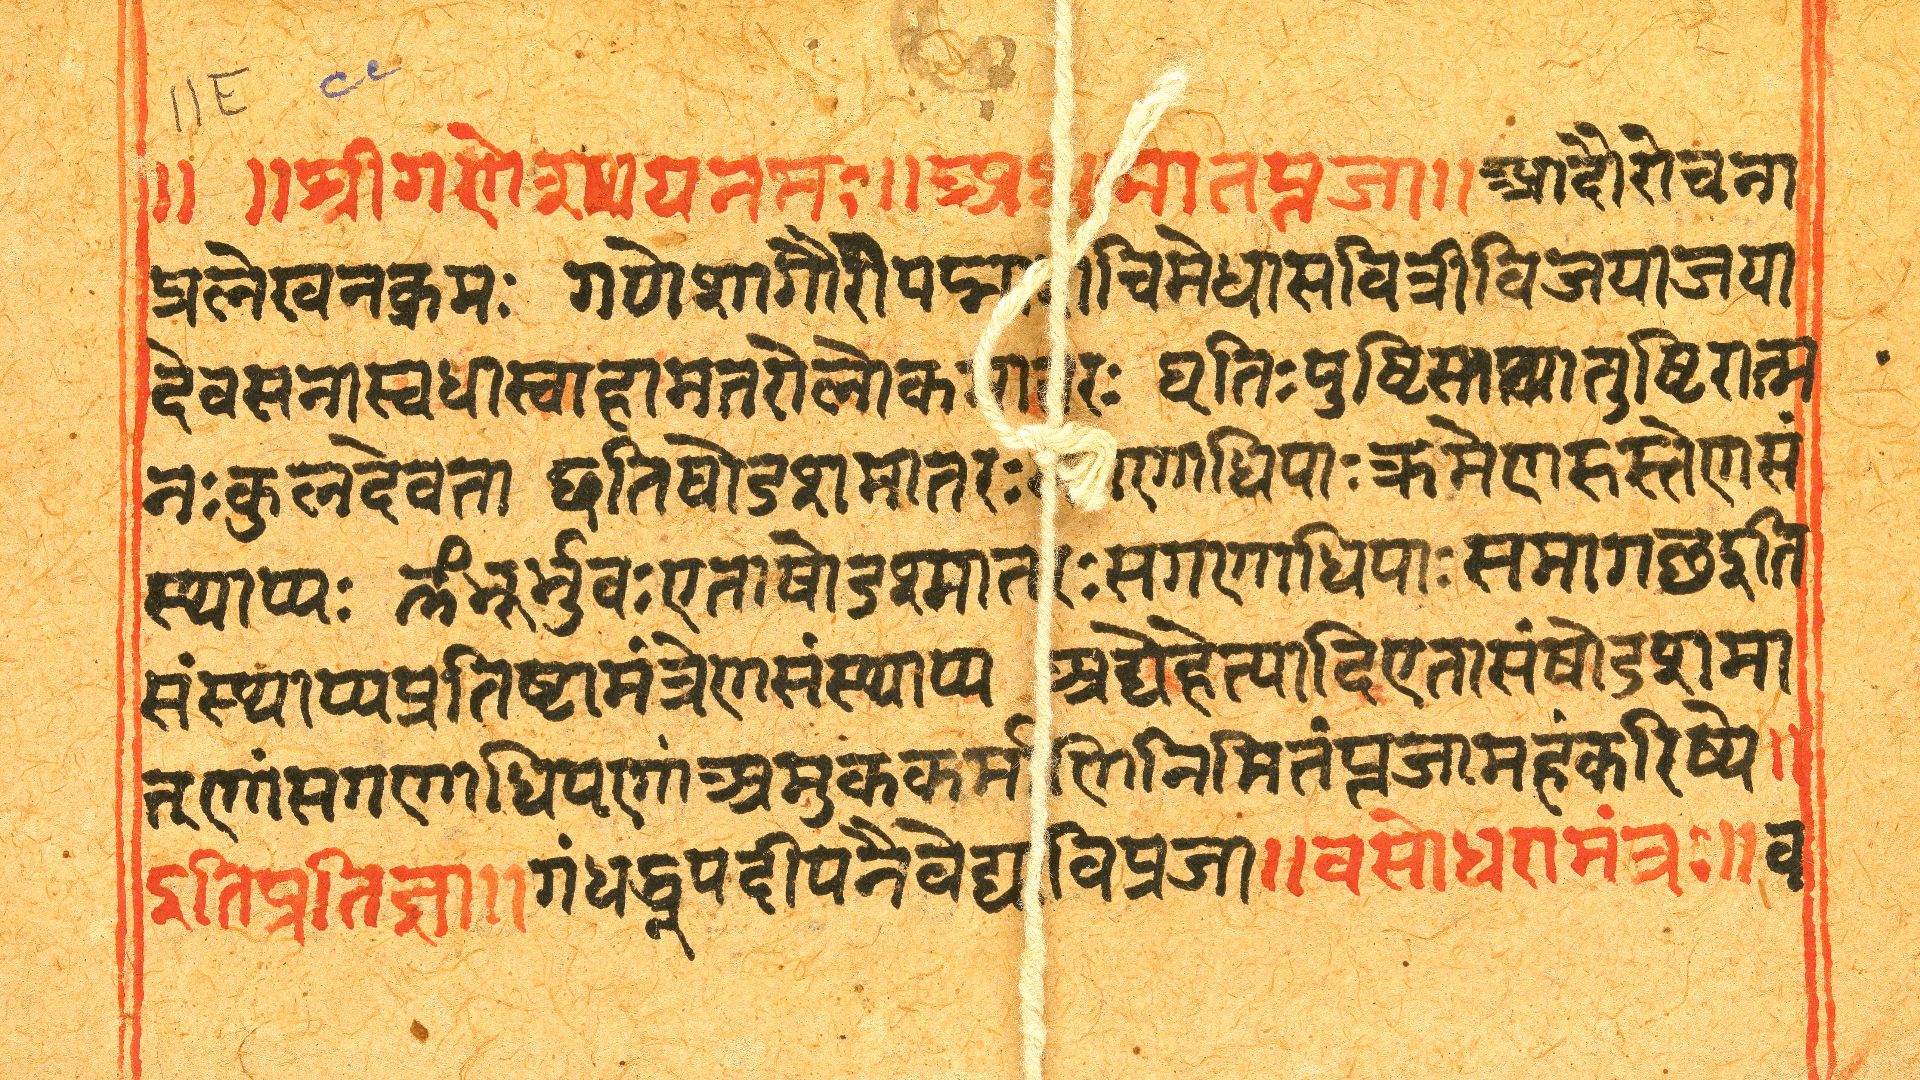 llE cc
॥ ॥श्रीगणेशाययनमः॥अथमातृपूजा॥आदौरोचना
प्रलेखनक्रमः गणेशागौरीपद्माशचिमेधासवित्रीविजयाजया
देवसनास्वधास्वाहामतरोलोकमातरः घृतिःपुष्टिस्तथातुष्टिरात्म
नःकुलदेवता छतिषोडशमातरः गणाधिपाःक्रमेणहस्तेणसं
स्थाप्यः ॐभूर्भुवःएताषोडश्मातरःसगणाधिपाःसमागछइति
संस्थाप्यप्रतिष्टामंत्रेणसंस्थाप्य अद्येहेत्यादिएतासंषोडशमा
तृणांसगणाधिपणांअमुककर्माणिनिमितंपूजामहंकरिष्ये॥
इतिप्रतिज्ञा॥गंधद्धूपदीपनैवेद्यविप्रजा॥वसोधरामंत्रः॥व